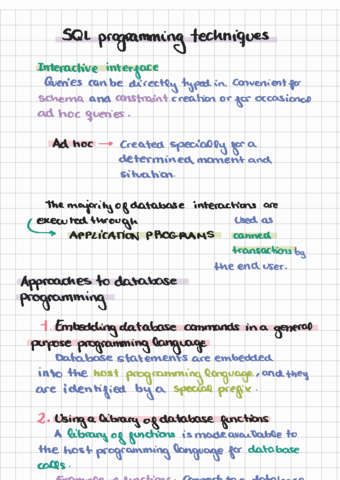 SQL programming techniques
Interactive interface
Queries can be directly typed in convenient for
schema and constraint creation or for occasional
ad hoc queries.
Ad hoc → Created specially for a
determined moment and
situation.
The majority of database interactions are
executed through
APPLICATION PROGRAMS
Used as
canned
transactions by
the end user.
Approaches to database
programming
1. Embedding database commands in a general
purpose programming language
Database statements are embedded
into the host programming language, and they
are identified by a special prefix.
2. Using a library of database functions
A library of functions is made available to
the host programming language for database
calls.